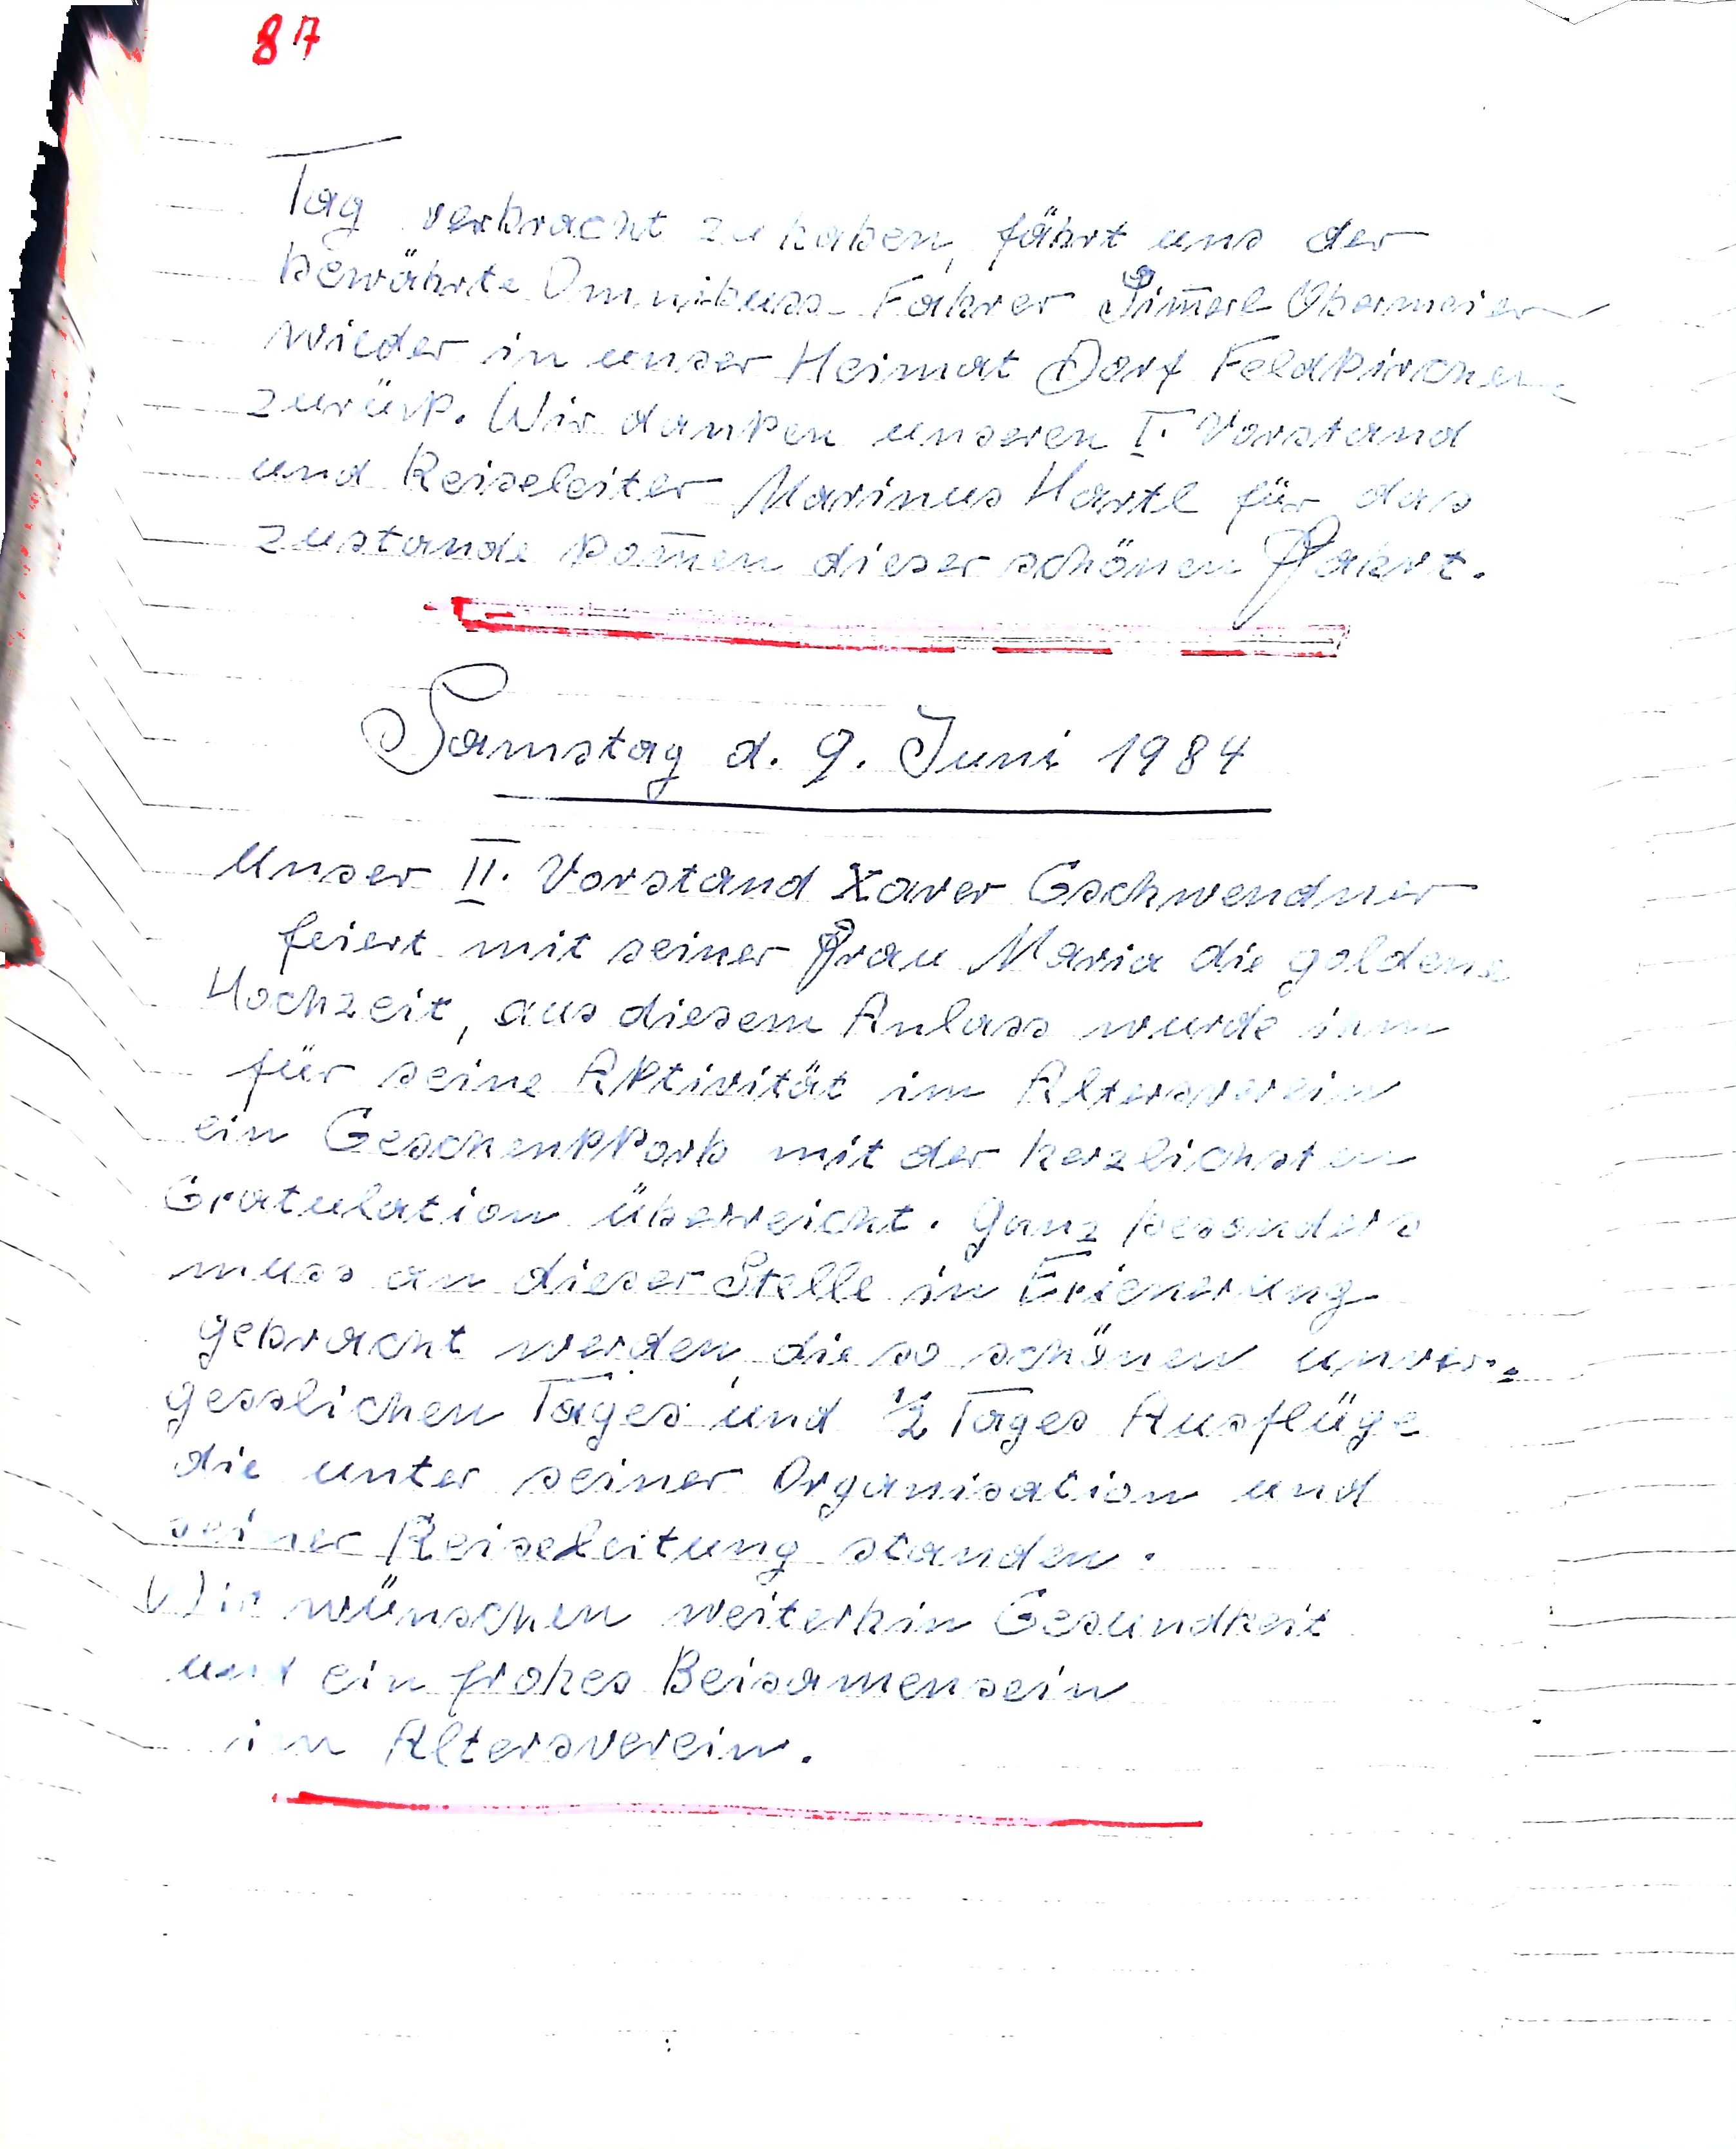 87
Tag verbracht zu haben, fährt uns der
bewährte Omnibuss-Fahrer Simerl Obermeier
wieder in unser Heimat Dorf Feldkirchen
zurük. Wir danken unseren I. Vorstand
und Reiseleiter Marinus Hartl für das
zustande kom̄en dieser schönen Fahrt.
Samstag d. 9. Juni 1984
Unser II. Vorstand Xaver Gschwendner
feiert mit seiner Frau Maria die goldene
Hochzeit, aus diesem Anlass wurde ihm
für seine Aktivität im Altersverein
ein Geschenkkorb mit der herzlichsten
Gratulation überreicht. Ganz besonders
muss an dieser Stelle in Erienerung
gebracht werden, die so schönen unver=
gesslichen Tages und ½ Tages Ausflüge
die unter seiner Organisation und
seiner Reiseleitung standen.
Wir wünschen weiterhin Gesundheit
und ein frohes Beisamensein
im Altersverein.